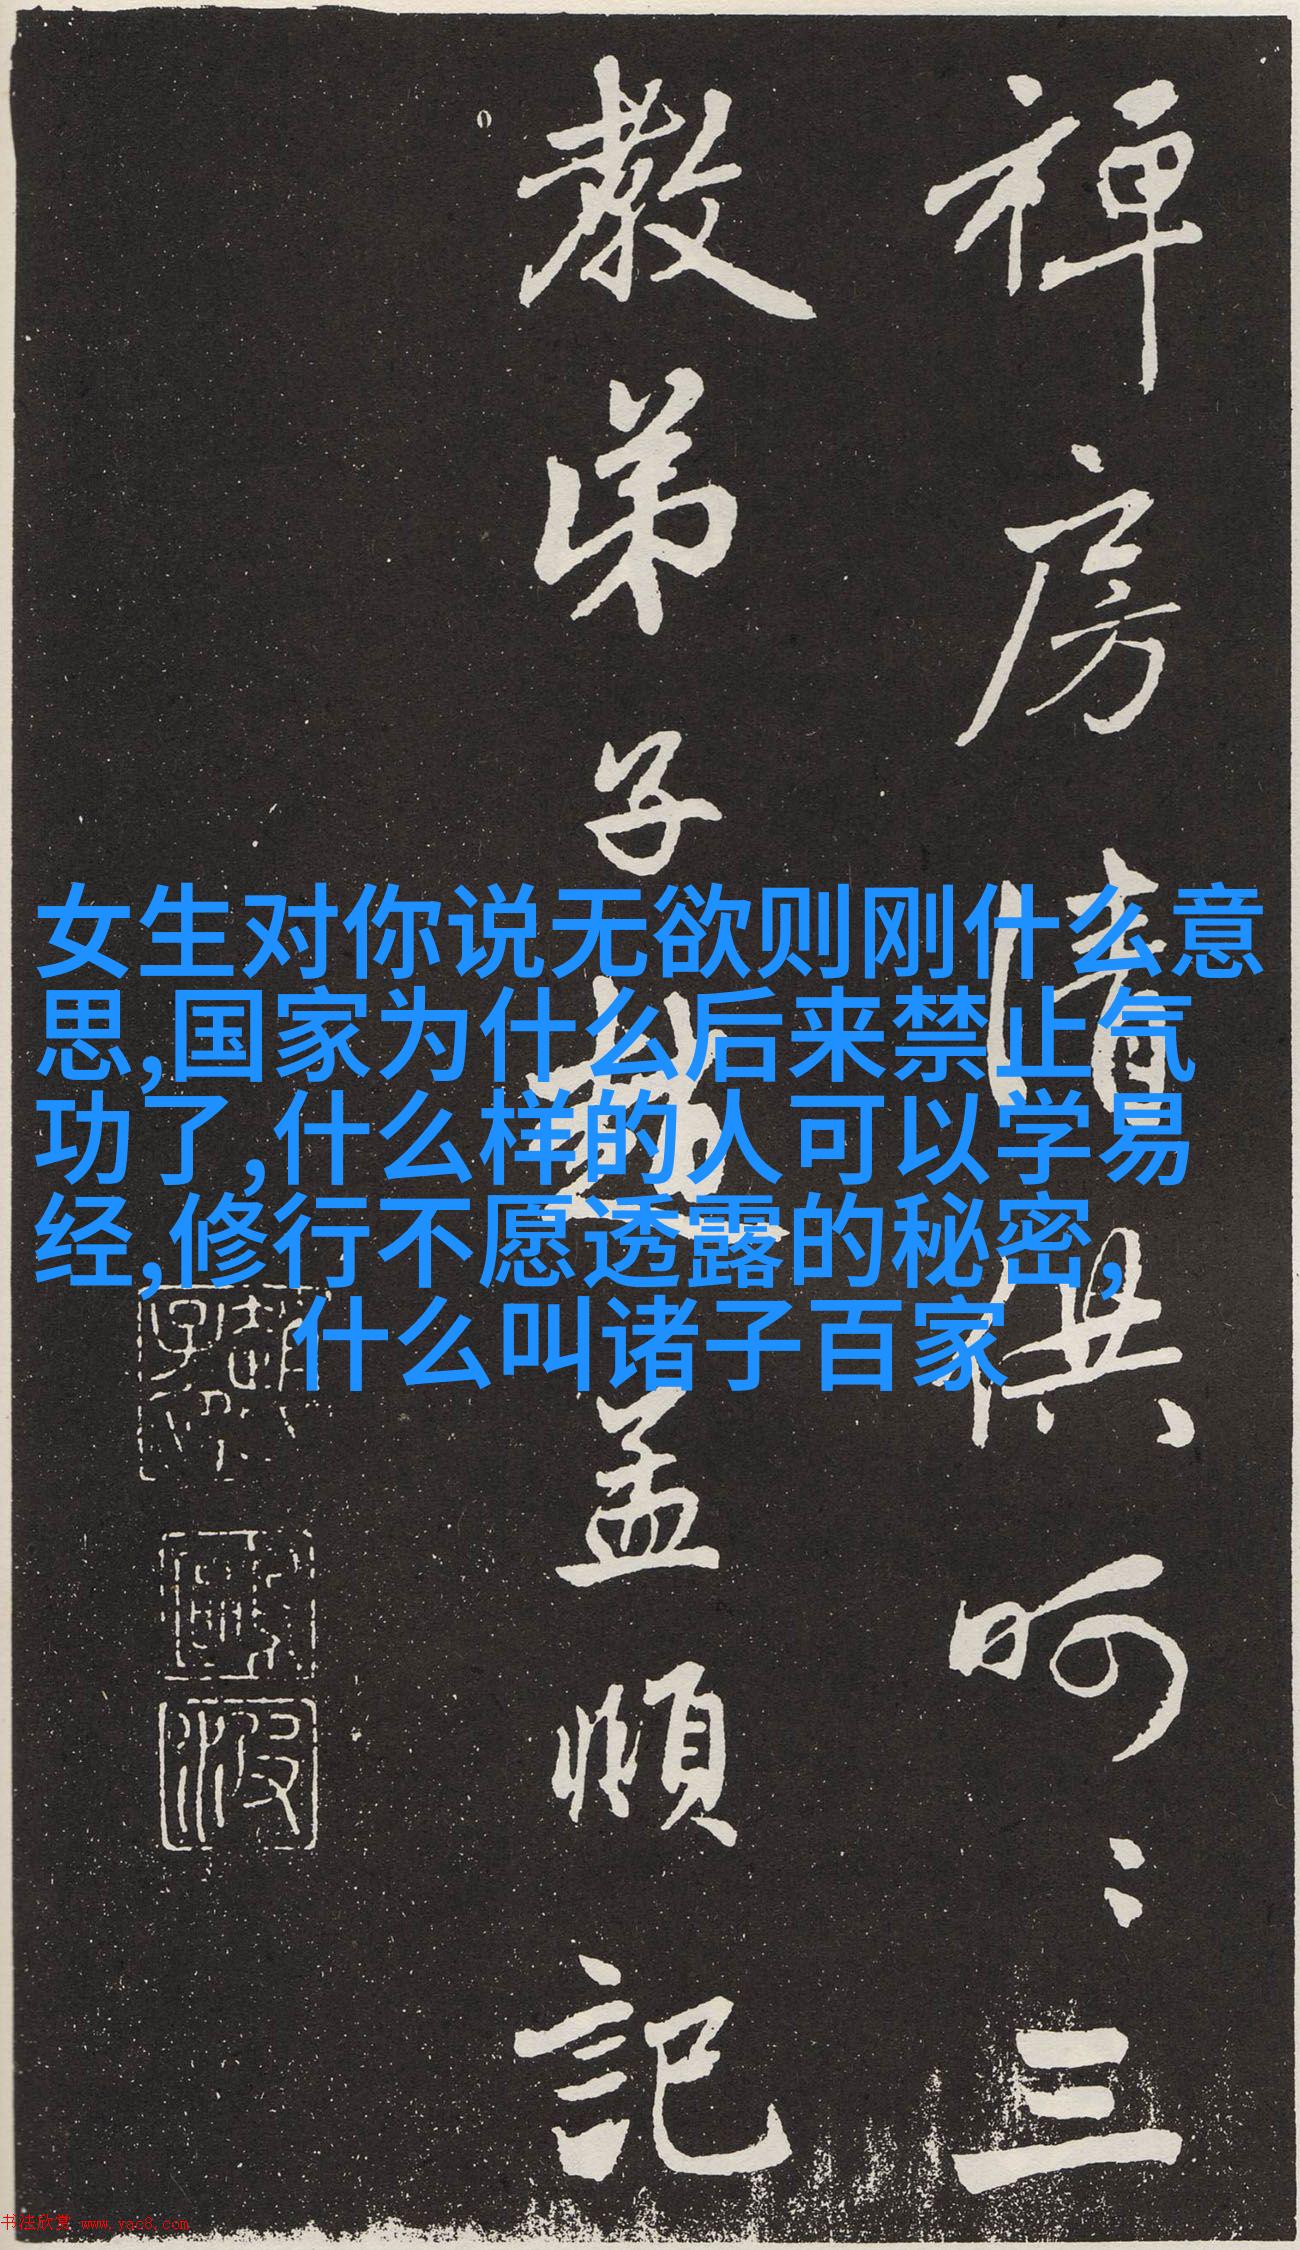 禪房清供呵〻三
教弟子趙孟頫記
女生对你说无欲则刚什么意
思,国家为什么后来禁止气
功了,什么样的人可以学易
经,修行不愿透露的秘密,
什么叫诸子百家
书法欣赏 www.yac8.com